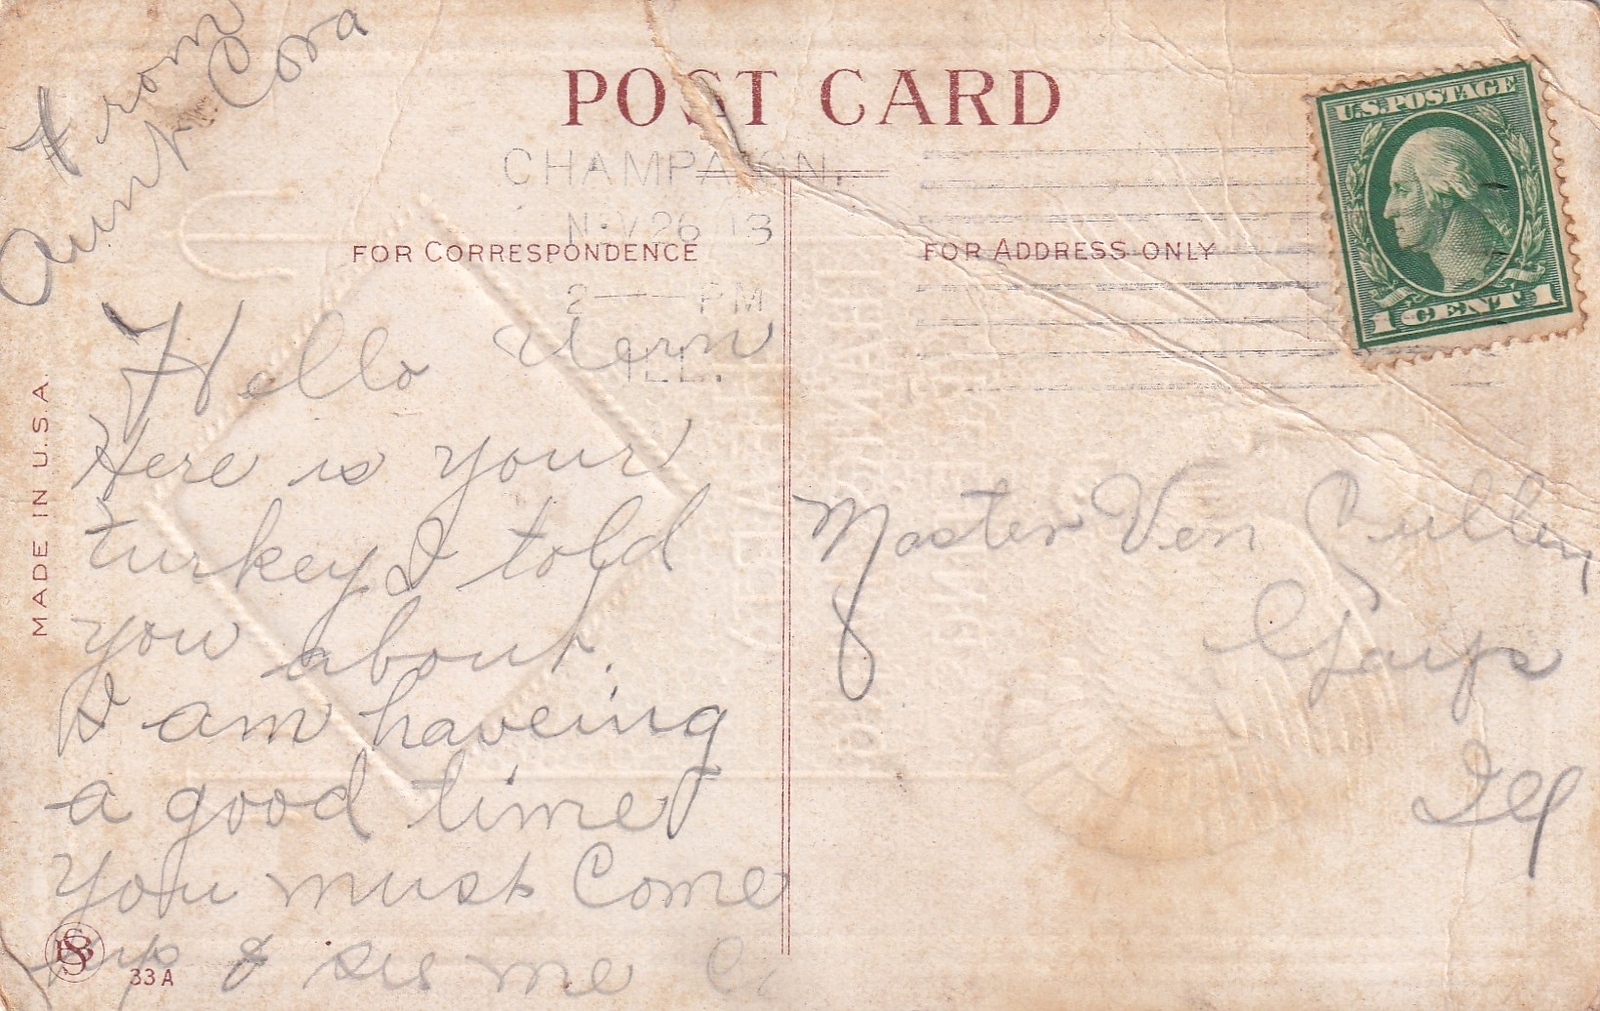 From
Aunt Cora
POST CARD
CHAMPAIGN.
NOV 26 13
2 PM
ILL.
U.S. POSTAGE
1 CENT 1
FOR CORRESPONDENCE
FOR ADDRESS ONLY
MADE IN U.S.A.
Hello Vern
Here is your
turkey I told
you about.
I am haveing
a good time
You must Come
up & see me C
Master Ven
Gays
Ill
33 A